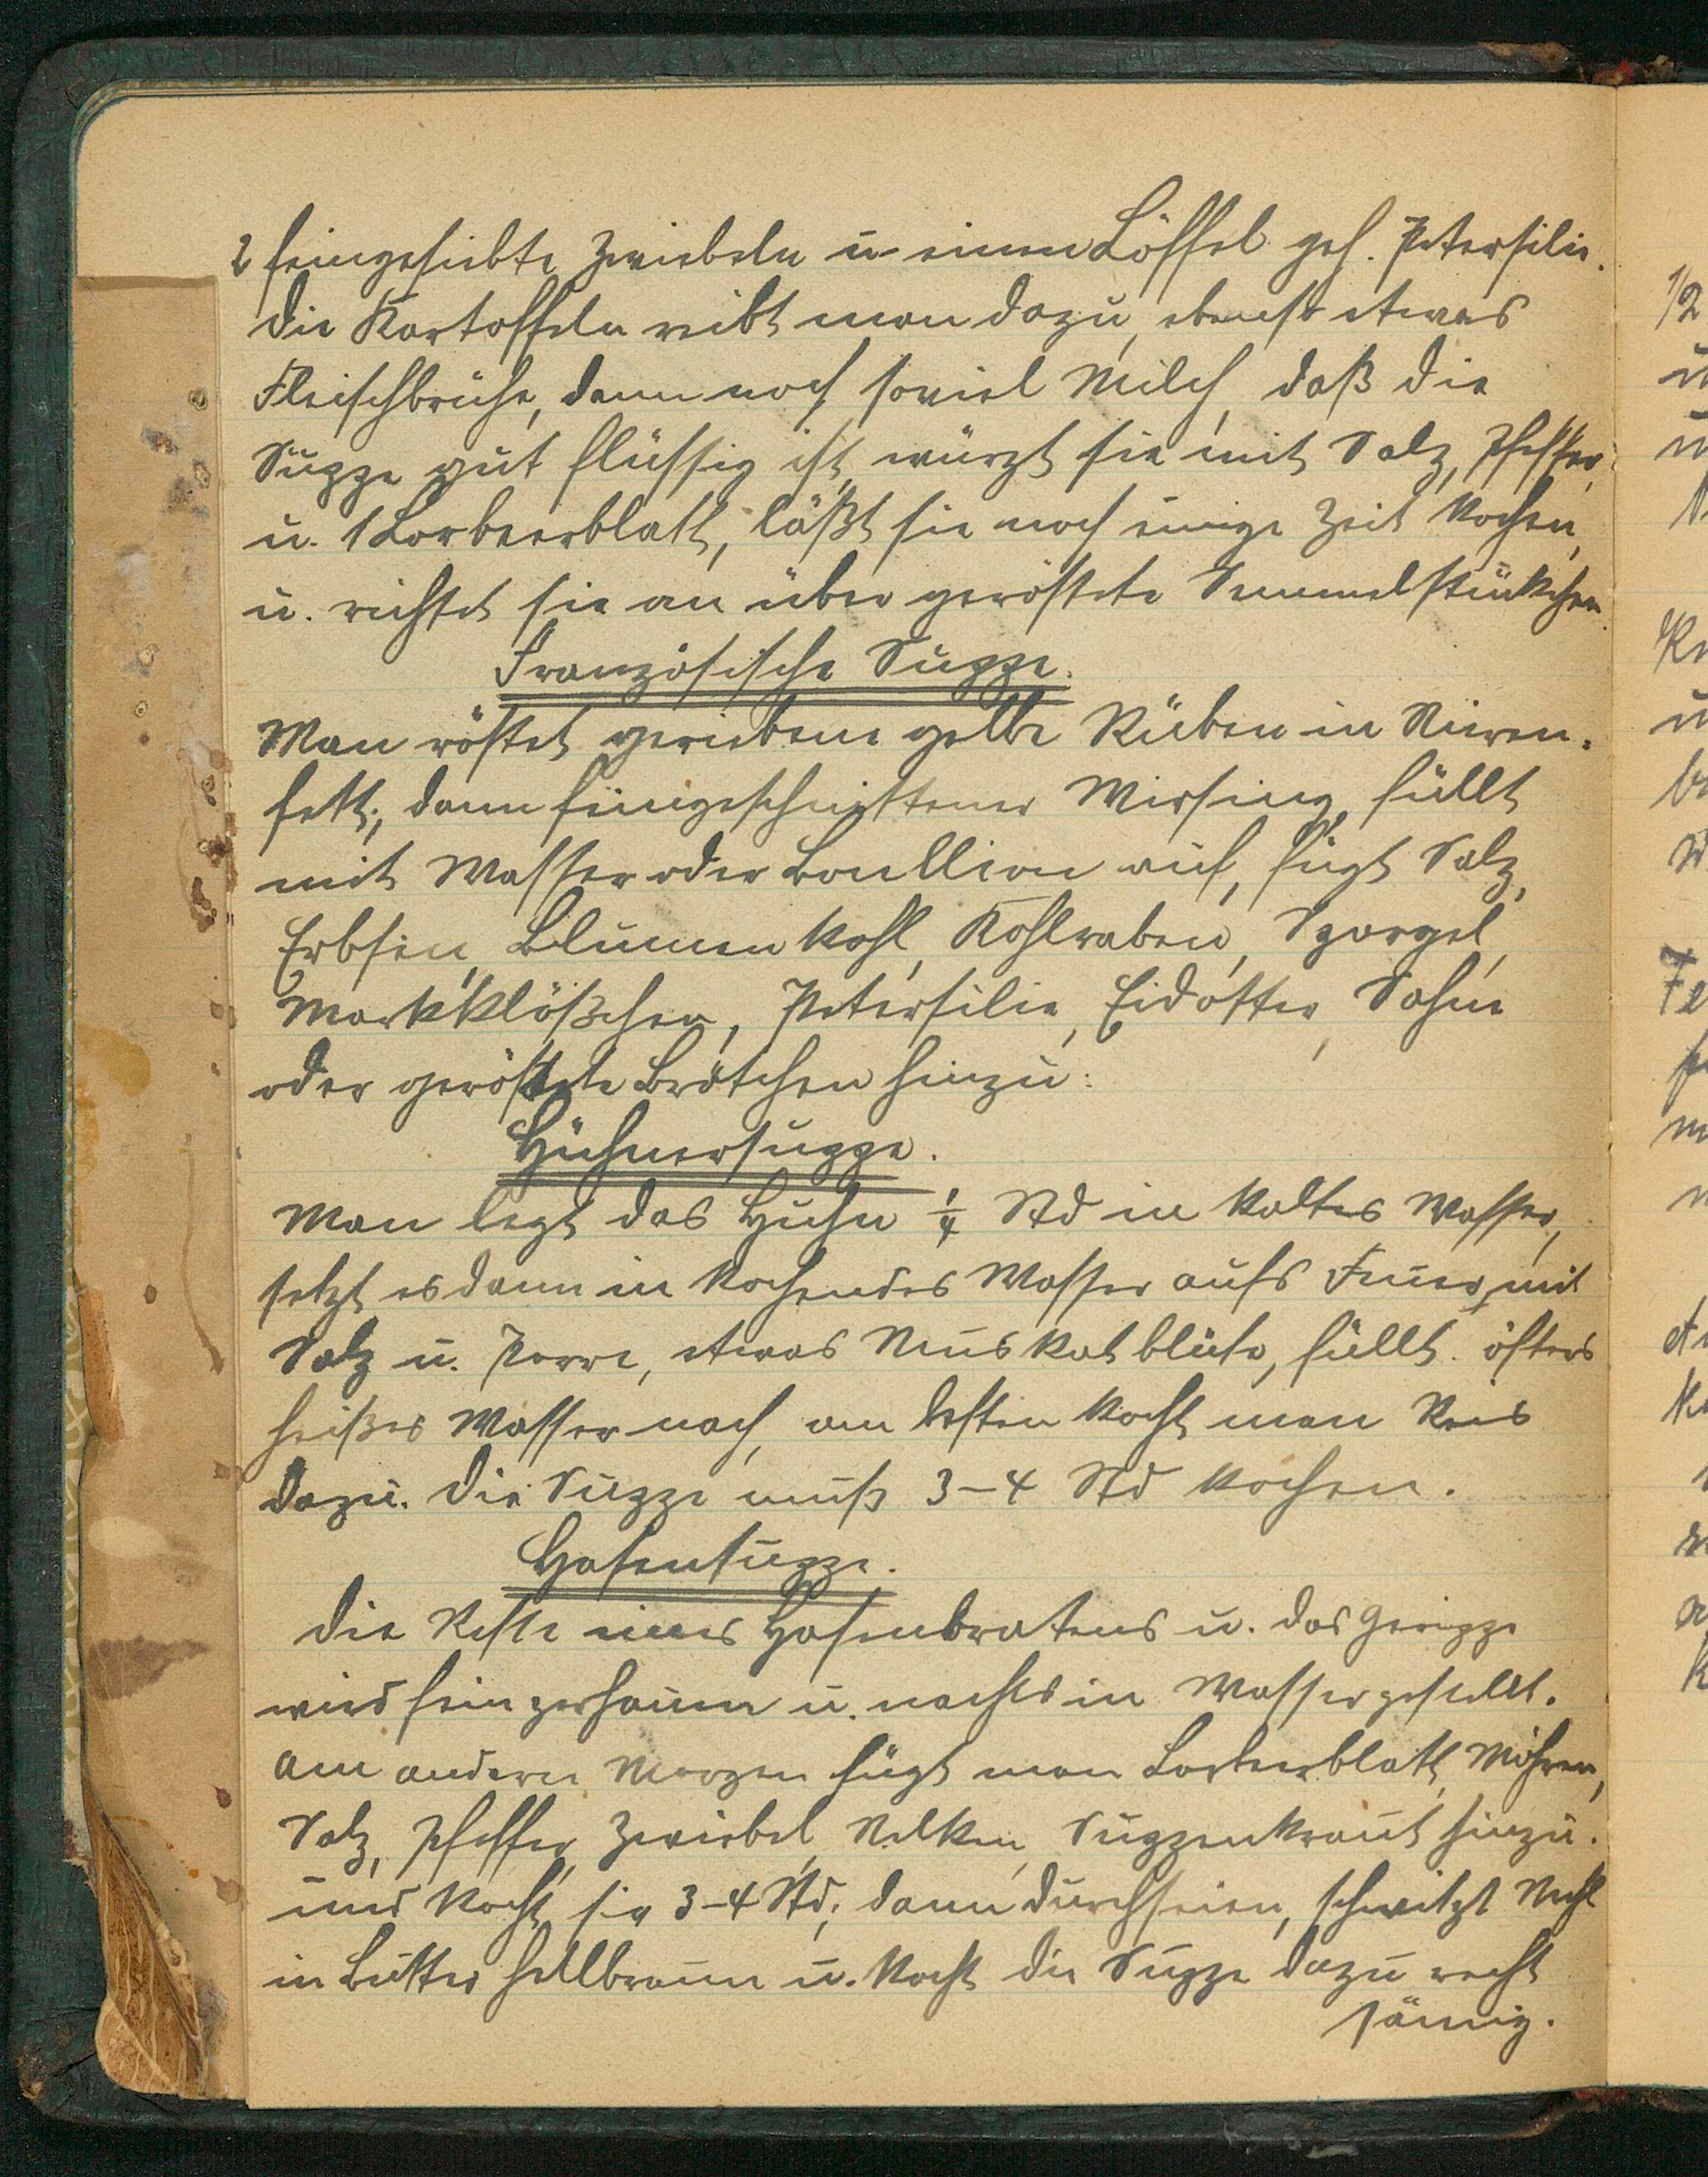 2 feingesiebte Zwiebeln u einen Löffel geh. Petersilie.
Die Kartoffeln reibt man dazu, ebenso etwas
Fleischbrühe, dann noch soviel Milch, daß die
Suppe gut flüssig ist, würzt sie mit Salz, Pfeffer,
u. 1 Lorbeerblatt, läßt sie noch einige Zeit kochen,
u. richtet sie an über geröstete Semmelstückchen.
Französische Suppe.
Man röstet geriebene gelbe Rüben in Nieren-
fett, dann feingeschnittener Wirsing, füllt
mit Wasser oder Boullion auf, fügt Salz,
Erbsen, Blumenkohl, Kohlraben, Spargel,
Markklößchen, Petersilie, Eidotter, Sahne
oder geröstete Brötchen hinzu.
Hühnersuppe.
Man legt das Huhn 1/4 Std in kaltes Wasser,
setzt es dann in kochendes Wasser aufs Feuer, mit
Salz u. Porre, etwas Muskatblüte, füllt öfters
heißes Wasser nach, am besten kocht man Reis
dazu. Die Suppe muß 3-4 Std kochen.
Hasensuppe.
Die Reste eines Hasenbratens u. das Gerippe
wird fein zerhauen u. nachts in Wasser gestellt.
Am andern Morgen fügt man Lorbeerblatt, Möhren,
Salz, Pfeffer, Zwiebel, Nelken, Suppenkraut hinzu.
und kocht sie 3-4 Std; dann durchseien, schwitzt Mehl
in Butter hellbraun u. kocht die Suppe dazu recht
sämig.